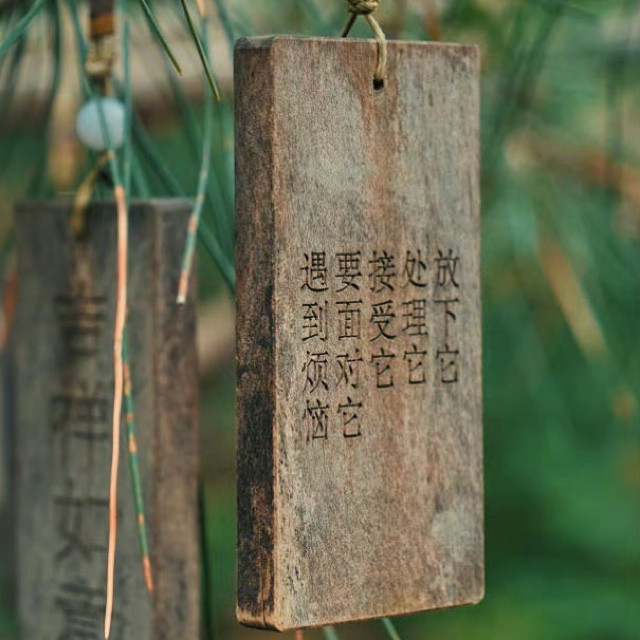 遇到烦恼
要面对它
接受它
处理它
放下它
吉祥